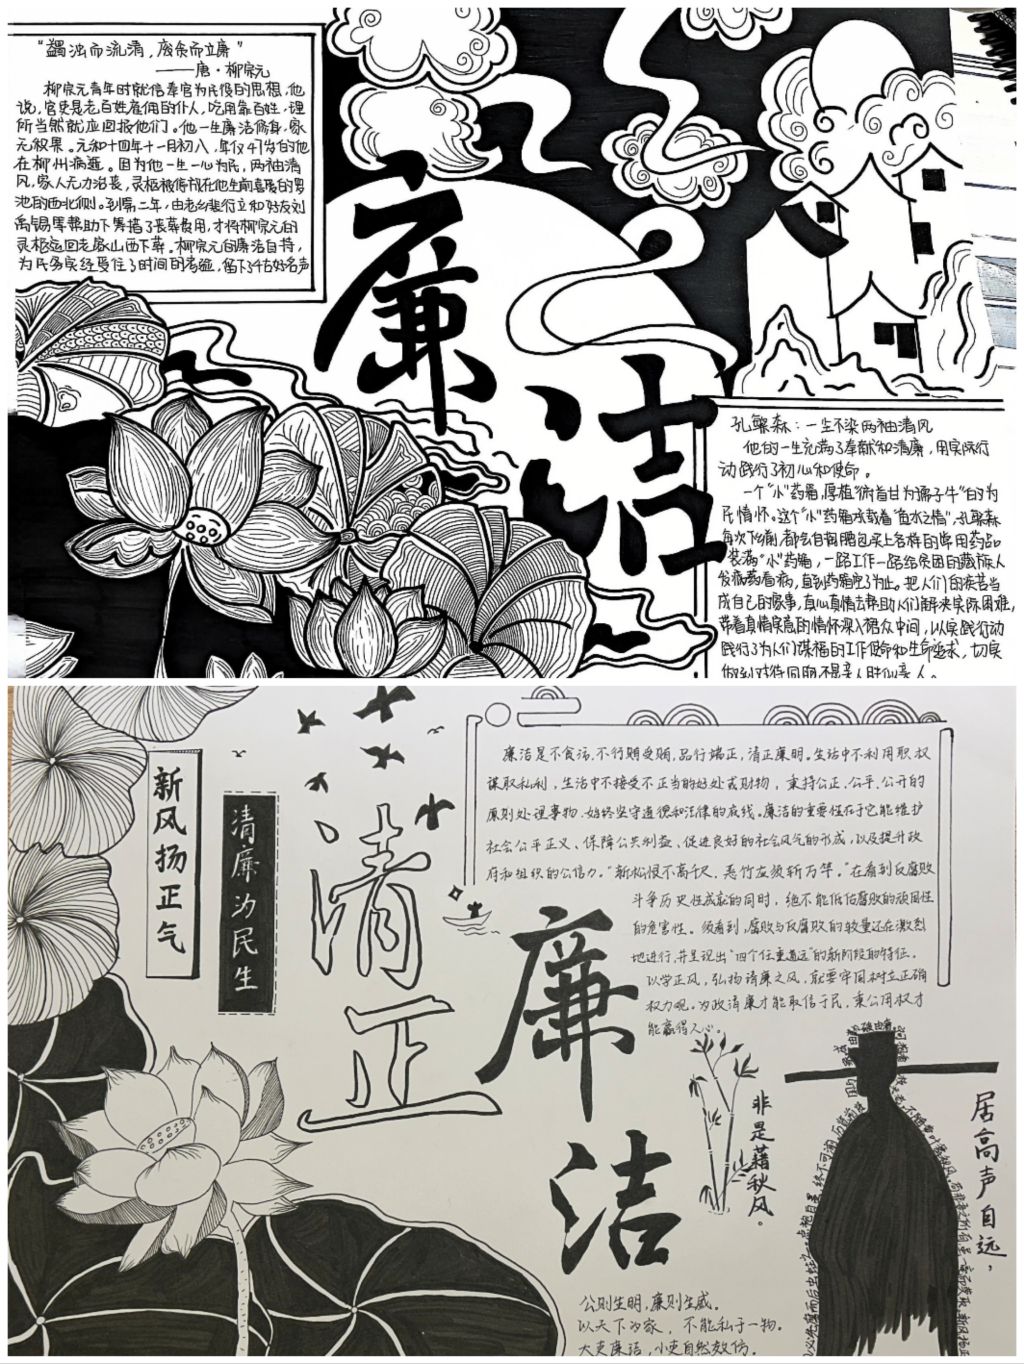 “蠲浊而流清，废贪而立廉”
——唐·柳宗元
柳宗元青年时就信奉官为民役的思想，他
说，官吏是老百姓雇佣的仆人，吃用靠百姓，理
所当然就应回报他们。他一生廉洁修身，家
无积累。元和十四年十一月初八，年仅47岁的他
在柳州病逝。因为他一生一心为民，两袖清
风，家人无力治丧，灵柩被停放在他生前喜爱的罗
池的西北侧。到第二年，由老乡裴行立和好友刘
禹锡等帮助下筹措了丧葬费用，才将柳宗元的
灵柩运回老家山西下葬。柳宗元的廉洁自持，
为民务实经受住了时间的考验，留下千古好名声
廉洁
孔繁森：一生不染两袖清风
他的一生充满了奉献和清廉，用实际行
动践行了初心和使命。
一个“小”药箱，厚植“俯首甘为孺子牛”的为
民情怀。这个“小”药箱承载着“鱼水之情”，孔繁森
每次下乡前，都会自掏腰包买上各样的常用药品
装满“小”药箱，一路工作一路给贫困的藏族人
发病药看病，直到药箱空了为止。把人们的疾苦当
成自己的家事，真心真情去帮助人们解决实际困难，
带着真情实意的情怀深入群众中间，以实践行动
践行了为人们谋福的工作使命和生命追求，切实
做到对待同胞不是亲人胜似亲人。
新风扬正气
清廉为民生
清正
廉洁
廉洁是不贪污，不行贿受贿，品行端正，清正廉明。生活中不利用职权
谋取私利，生活中不接受不正当的好处或财物，秉持公正、公平、公开的
原则处理事物，始终坚守道德和法律的底线。廉洁的重要性在于它能维护
社会公平正义、保障公共利益、促进良好的社会风气的形成，以及提升政
府和组织的公信力。“新松恨不高千尺，恶竹应须斩万竿。”在看到反腐败
斗争历史性成就的同时，绝不能低估腐败的顽固性
的危害性。须看到，腐败与反腐败的较量还在激烈
地进行，并呈现出“四个任重道远”的新阶段的特征。
以学正风，弘扬清廉之风，就要牢固树立正确
权力观。为政清廉才能取信于民，秉公用权才
能赢得人心。
居高声自远，
非是藉秋风。
公则生明，廉则生威。
以天下为家，不能私于一物。
大吏廉洁，小吏自然效仿。